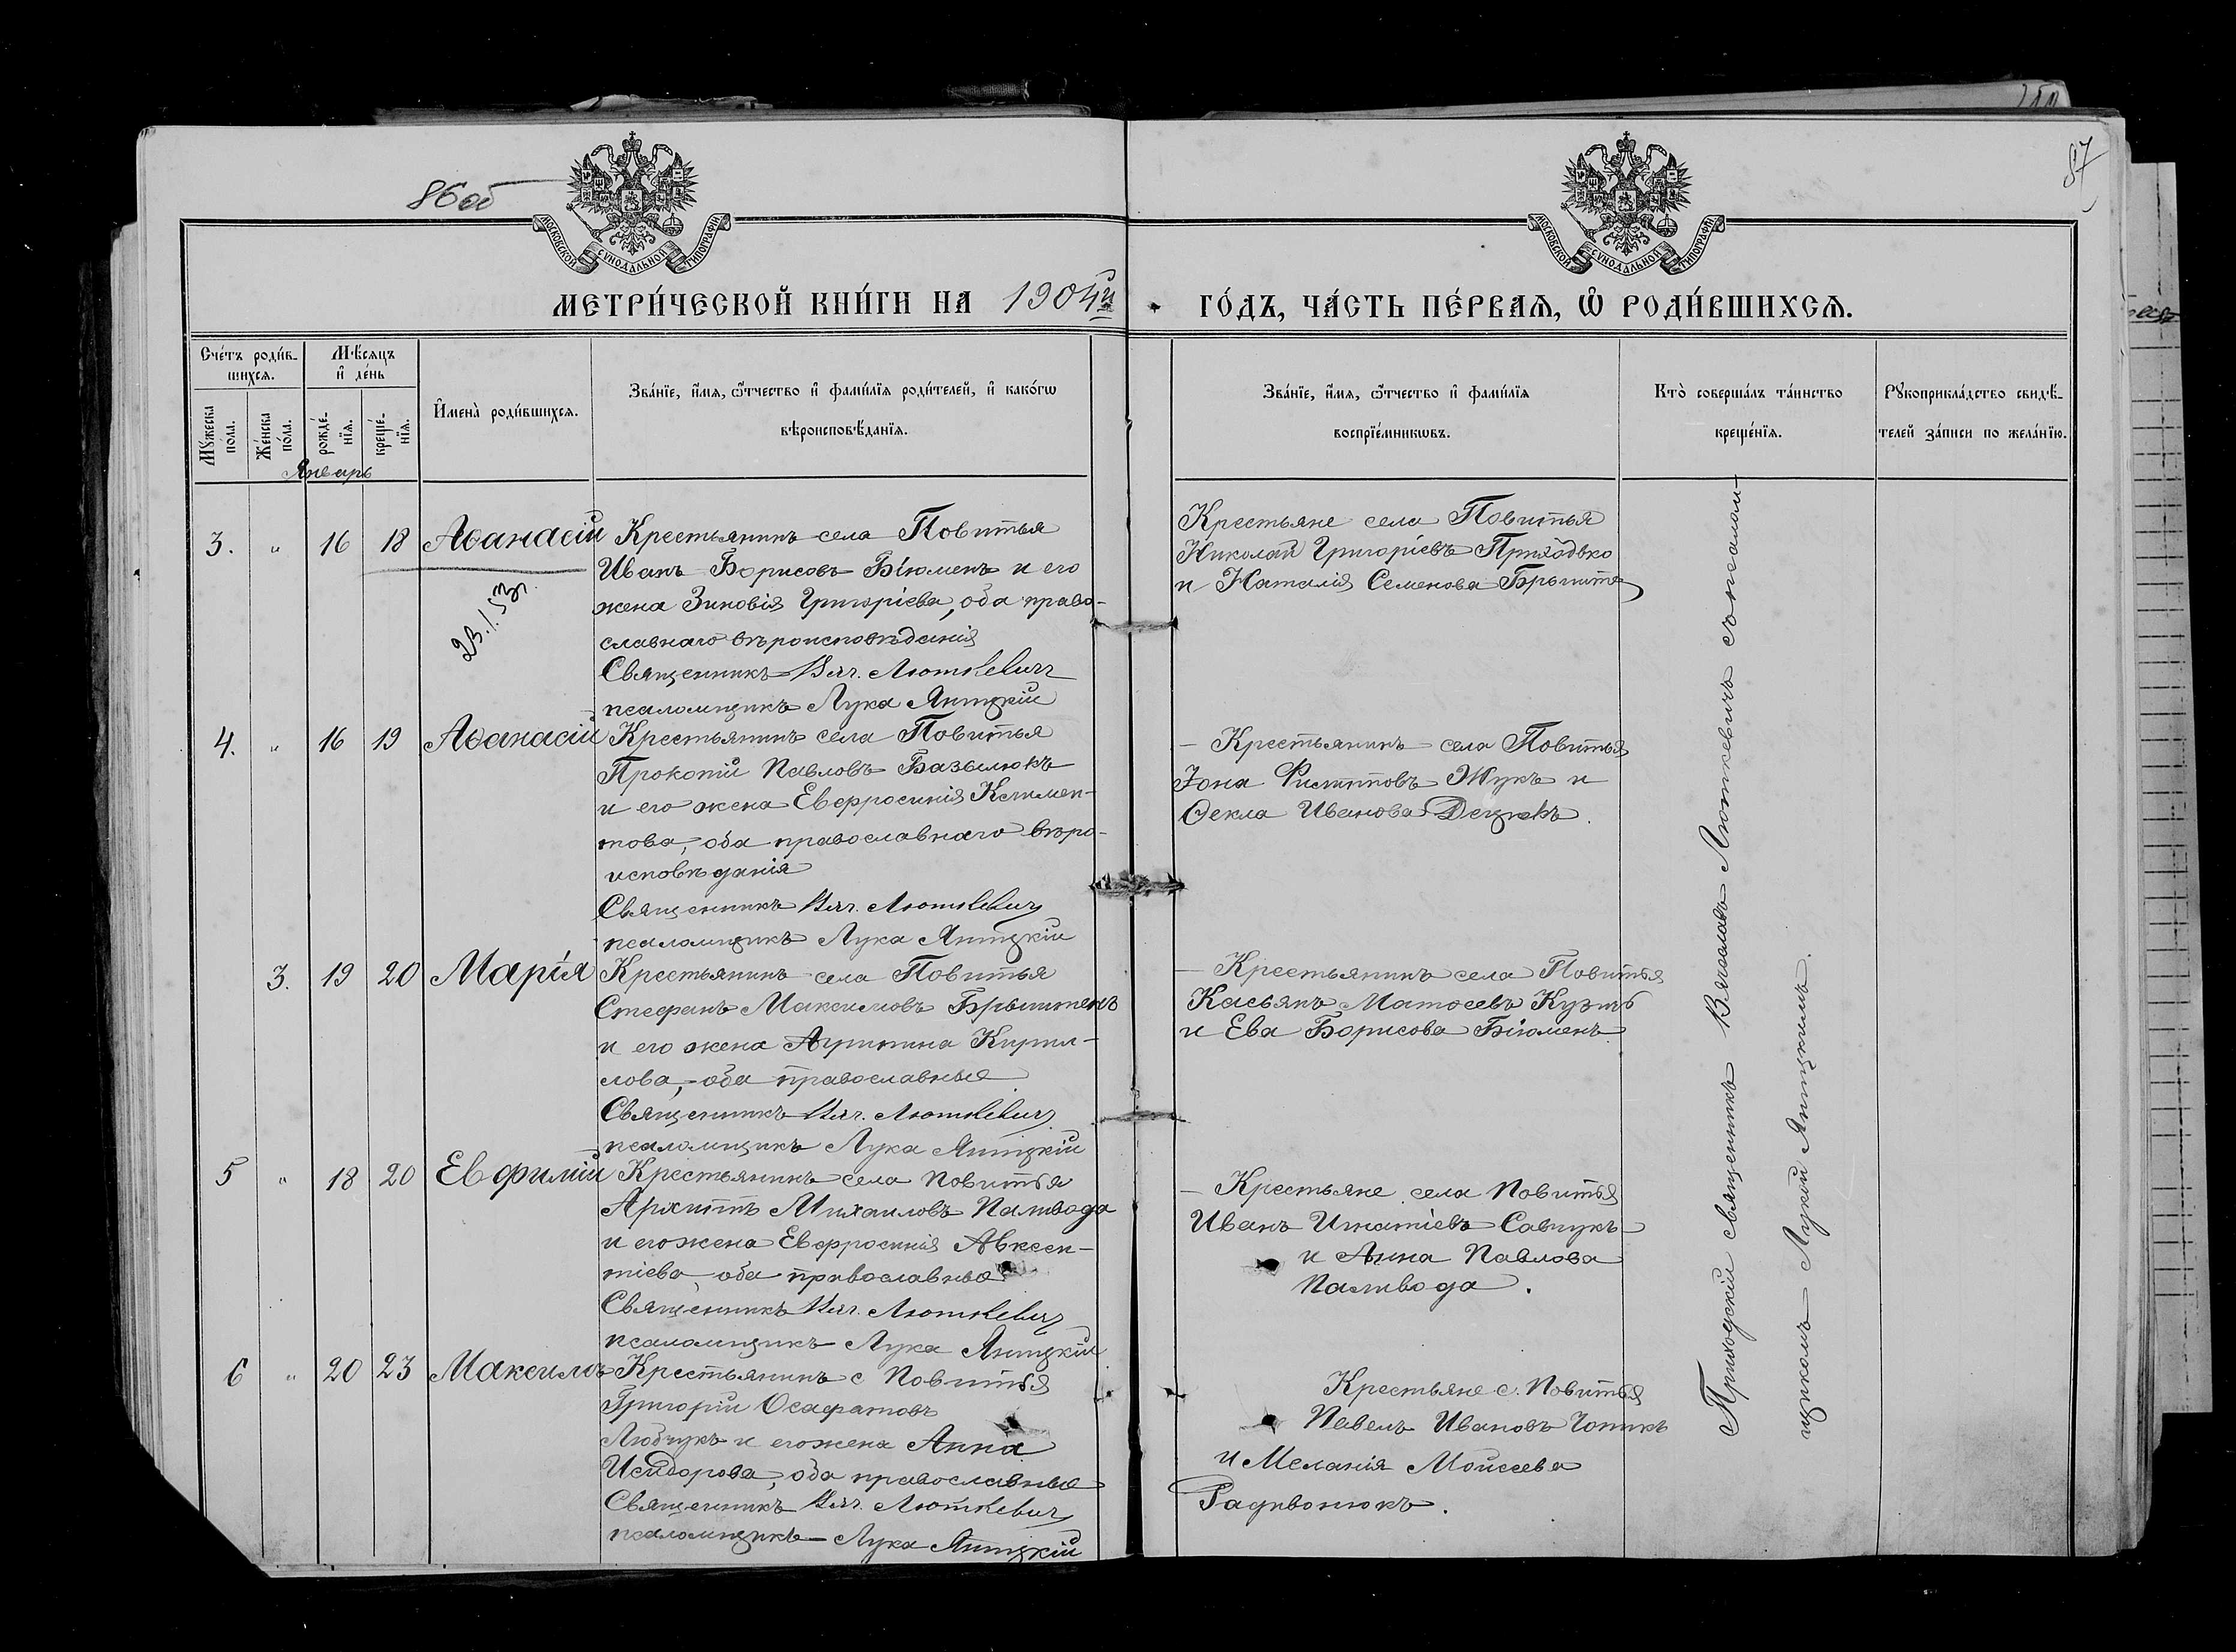 86об
87
МОСКОВСКОЙ СѴНОДАЛЬНОЙ ТИПОГРАФІИ
МОСКОВСКОЙ СѴНОДАЛЬНОЙ ТИПОГРАФІИ
МЕТРИ́ЧЕСКОЙ КНИ́ГИ НА 1904й ГО́ДЪ, ЧА́СТЬ ПЕ́РВАѦ, Ѽ РОДИ́ВШИХСѦ.
Сче́тъ роди́в-
шихсѧ.
Мѣ́сѧцъ
и҆ де́нь
Мꙋ́жеска по́ла.
Же́нска по́ла.
рожде́-
нїѧ.
креще́-
нїѧ.
И҆мена̀ роди́вшихсѧ.
Зва́нїе, и҆́мѧ, ѻ҆́тчество и҆ фами́лїѧ роди́телей, и҆ како́гѡ
вѣроисповѣ́данїѧ.
Зва́нїе, и҆́мѧ, ѻ҆́тчество и҆ фами́лїѧ
воспрїе́мникѡвъ.
Кто̀ соверша́лъ та́инство
креще́нїѧ.
Рꙋкоприкла́дство свидѣ́-
телей за́писи по жела́нїю.
Январь
3. " 16 18 Аѳанасій
23.1.53г.
Крестьянинъ села Повитья
Иванъ Борисовъ Біюменъ и его
жена Зиновія Григоріева, оба право-
славнаго вѣроисповѣданія
Священникъ Вяч. Люткевичъ
псаломщикъ Лука Яницкій
Крестьяне села Повитья
Николай Григоріевъ Приходько
и Наталія Семенова
4. " 16 19 Аѳанасій
Крестьянинъ села Повитья
Прокопій Павловъ Базылюкъ
и его жена Евфросинія Климен-
това, оба православнаго вѣро-
исповѣданія
Священникъ Вяч. Люткевичъ
псаломщикъ Лука Яницкій
– Крестьянинъ села Повитья
Іона Филипповъ Жукъ и
Ѳекла Иванова
3. 19 20 Марія
Крестьянинъ села Повитья
Стефанъ Максимовъ Брынтенъ
и его жена Агрипина Кирил-
лова, – оба православные
Священникъ Вяч. Люткевичъ
псаломщикъ Лука Яницкій
– Крестьянинъ села Повитья
Касьянъ Матѳеевъ
и Ева Борисова Біюменъ
5 " 18 20 Евфимій
Крестьянинъ села Повитья
Архиппъ Михаиловъ Паливода
и его жена Евфросинія Авксен-
тіева оба православные
Священникъ Вяч. Люткевичъ
псаломщикъ Лука Яницкій
– Крестьяне села Повитья
Иванъ Игнатіевъ Савчукъ
и Анна Павлова
Паливода.
6 " 20 23 Максимъ
Крестьянинъ с Повитья
Григорій Осафатовъ
Любчукъ и его жена Анна
Исидорова, оба православные
Священникъ Вяч. Люткевичъ
псаломщикъ – Лука Яницкій
Крестьяне с. Повитья
Павелъ Ивановъ
и Меланія Моисеева
Радивонюкъ.
Приходскій священникъ Вячеславъ Люткевичъ съ псалом-
щикомъ Лукой Яницкимъ.